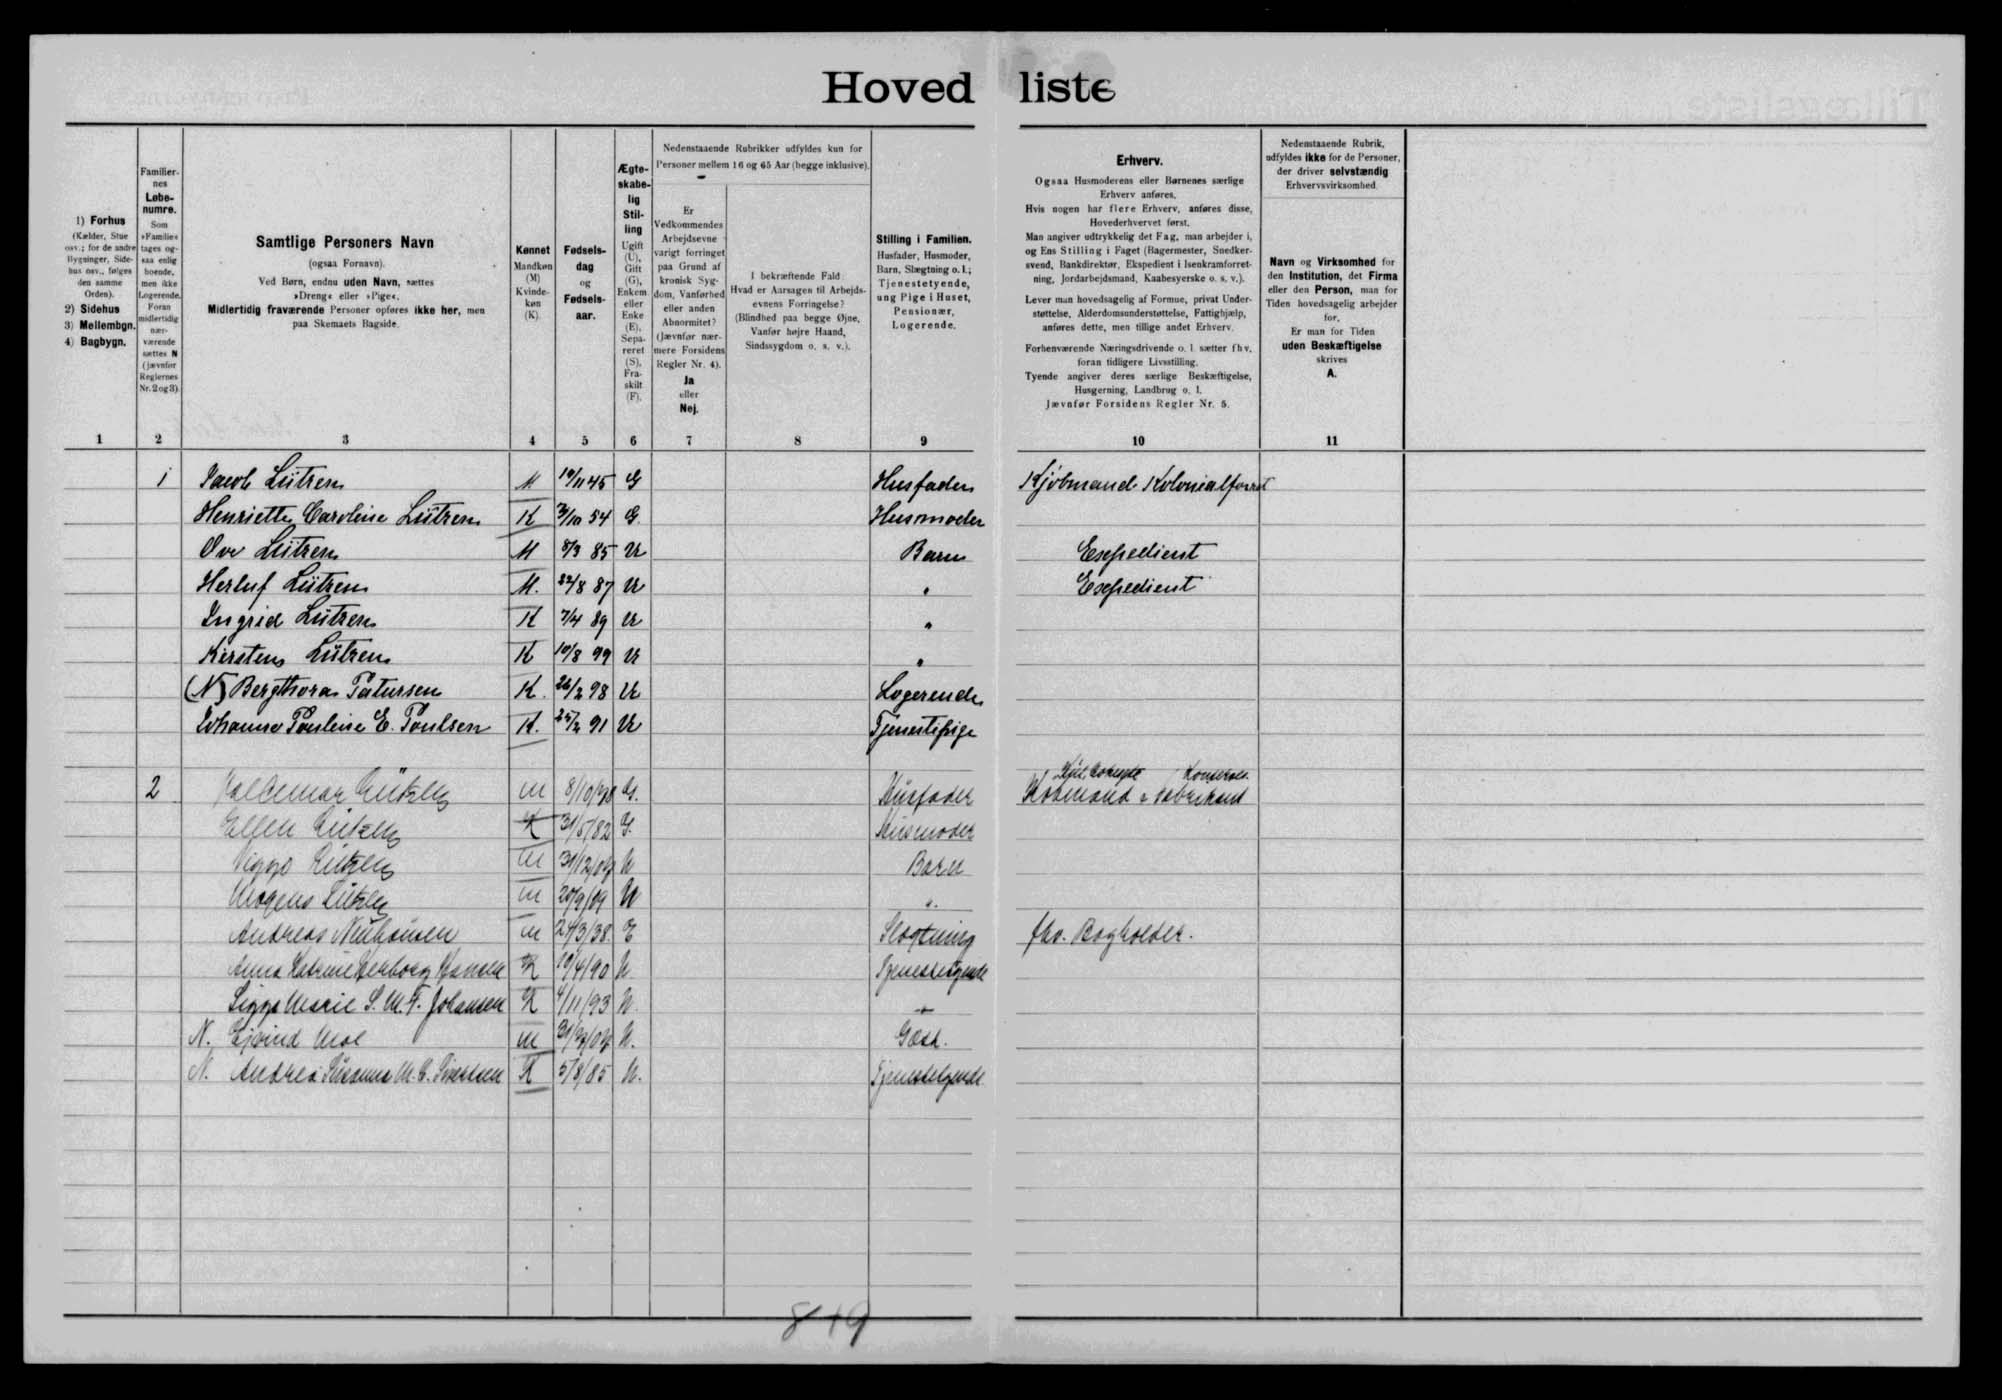 Hovedliste
1) Forhus
(Kælder, Stue
osv.; for de andre
Bygninger, Side-
hus osv., følges
den samme
Orden).
2) Sidehus
3) Mellembgn.
4) Bagbygn.
1
Familier-
nes
Løbe-
numre.
Som
»Familie«
tages og-
saa enlig
boende,
men ikke
Logerende.
Foran
midlertidig
nær-
værende
sættes N
(jævnfør
Reglernes
Nr. 2 og 3).
2
Samtlige Personers Navn
(ogsaa Fornavn).
Ved Børn, endnu uden Navn, sættes
»Dreng« eller »Pige«.
Midlertidig fraværende Personer opføres ikke her, men
paa Skemaets Bagside.
3
Kønnet
Mandkøn
(M)
Kvinde-
køn
(K).
4
Fødsels-
dag
og
Fødsels-
aar.
5
Ægte-
skabe-
lig
Stil-
ling
Ugift
(U),
Gift
(G),
Enkem.
eller
Enke
(E),
Sepa-
reret
(S),
Fra-
skilt
(F).
6
Nedenstaaende Rubrikker udfyldes kun for
Personer mellem 16 og 65 Aar (begge inklusive).
Er
Vedkommendes
Arbejdsevne
varigt forringet
paa Grund af
kronisk Syg-
dom, Vanførhed
eller anden
Abnormitet?
(Jævnfør nær-
mere Forsidens
Regler Nr. 4).
Ja
eller
Nej.
7
I bekræftende Fald:
Hvad er Aarsagen til Arbejds-
evnens Forringelse?
(Blindhed paa begge Øjne,
Vanfør højre Haand,
Sindssygdom o. s. v.).
8
Stilling i Familien.
Husfader, Husmoder,
Barn, Slægtning o. l.;
Tjenestetyende,
ung Pige i Huset,
Pensionær,
Logerende.
9
Erhverv.
Ogsaa Husmoderens eller Børnenes særlige
Erhverv anføres.
Hvis nogen har flere Erhverv, anføres disse,
Hovederhvervet først.
Man angiver udtrykkelig det Fag, man arbejder i,
og Ens Stilling i Faget (Bagermester, Snedker-
svend, Bankdirektør, Ekspedient i Isenkramforret-
ning, Jordarbejdsmand, Kaabesyerske o. s. v.).
Lever man hovedsagelig af Formue, privat Under-
støttelse, Alderdomsunderstøttelse, Fattighjælp,
anføres dette, men tillige andet Erhverv.
Forhenværende Næringsdrivende o. l. sætter fhv.
foran tidligere Livsstilling.
Tyende angiver deres særlige Beskæftigelse,
Husgerning, Landbrug o. l.
Jævnfør Forsidens Regler Nr. 5.
10
Nedenstaaende Rubrik,
udfyldes ikke for de Personer,
der driver selvstændig
Erhvervsvirksomhed.
Navn og Virksomhed for
den Institution, det Firma
eller den Person, man for
Tiden hovedsagelig arbejder
for.
Er man for Tiden
uden Beskæftigelse
skrives
A.
11
1 Jacob Lützen M. 19/11 45 G Husfader Kjöbmand Kolonialforret
Henriette Caroline Lützen K 3/10 54 G. Husmoder
Ove Lützen M 8/3 85 U Barn Expedient
Herluf Lützen M. 22/8 87 U " Expedient
Ingrid Lützen K 7/4 89 U "
Kirsten Lützen K 10/8 99 U "
(N) Bergthora Patursen K. 26/2 98 U Logerende
Johanne Pouline E. Poulsen K. 25/2 91 U Tjenestepige
2 Valdemar Lützen m 8/10/78 G. Husfader Købmand & Fabrikant
Ellen Lützen K 31/5/82 G. Husmoder
Viggo Lützen m 31/12/07 U Barn
Mogens Lützen m 20/9/09 U "
Andreas m 24/3/38. E Slægtning fhv. Bogholder.
Anna Katrine Hansen K 19/4/90 U. Tjenestetyende
Marie S. M. F. Johansen K 4/11/93 U. "
N. Ejvind m U. Gæst.
N. Andrea Susanna M. C. K 5/8/85 U. Tjenestetyende
8+9